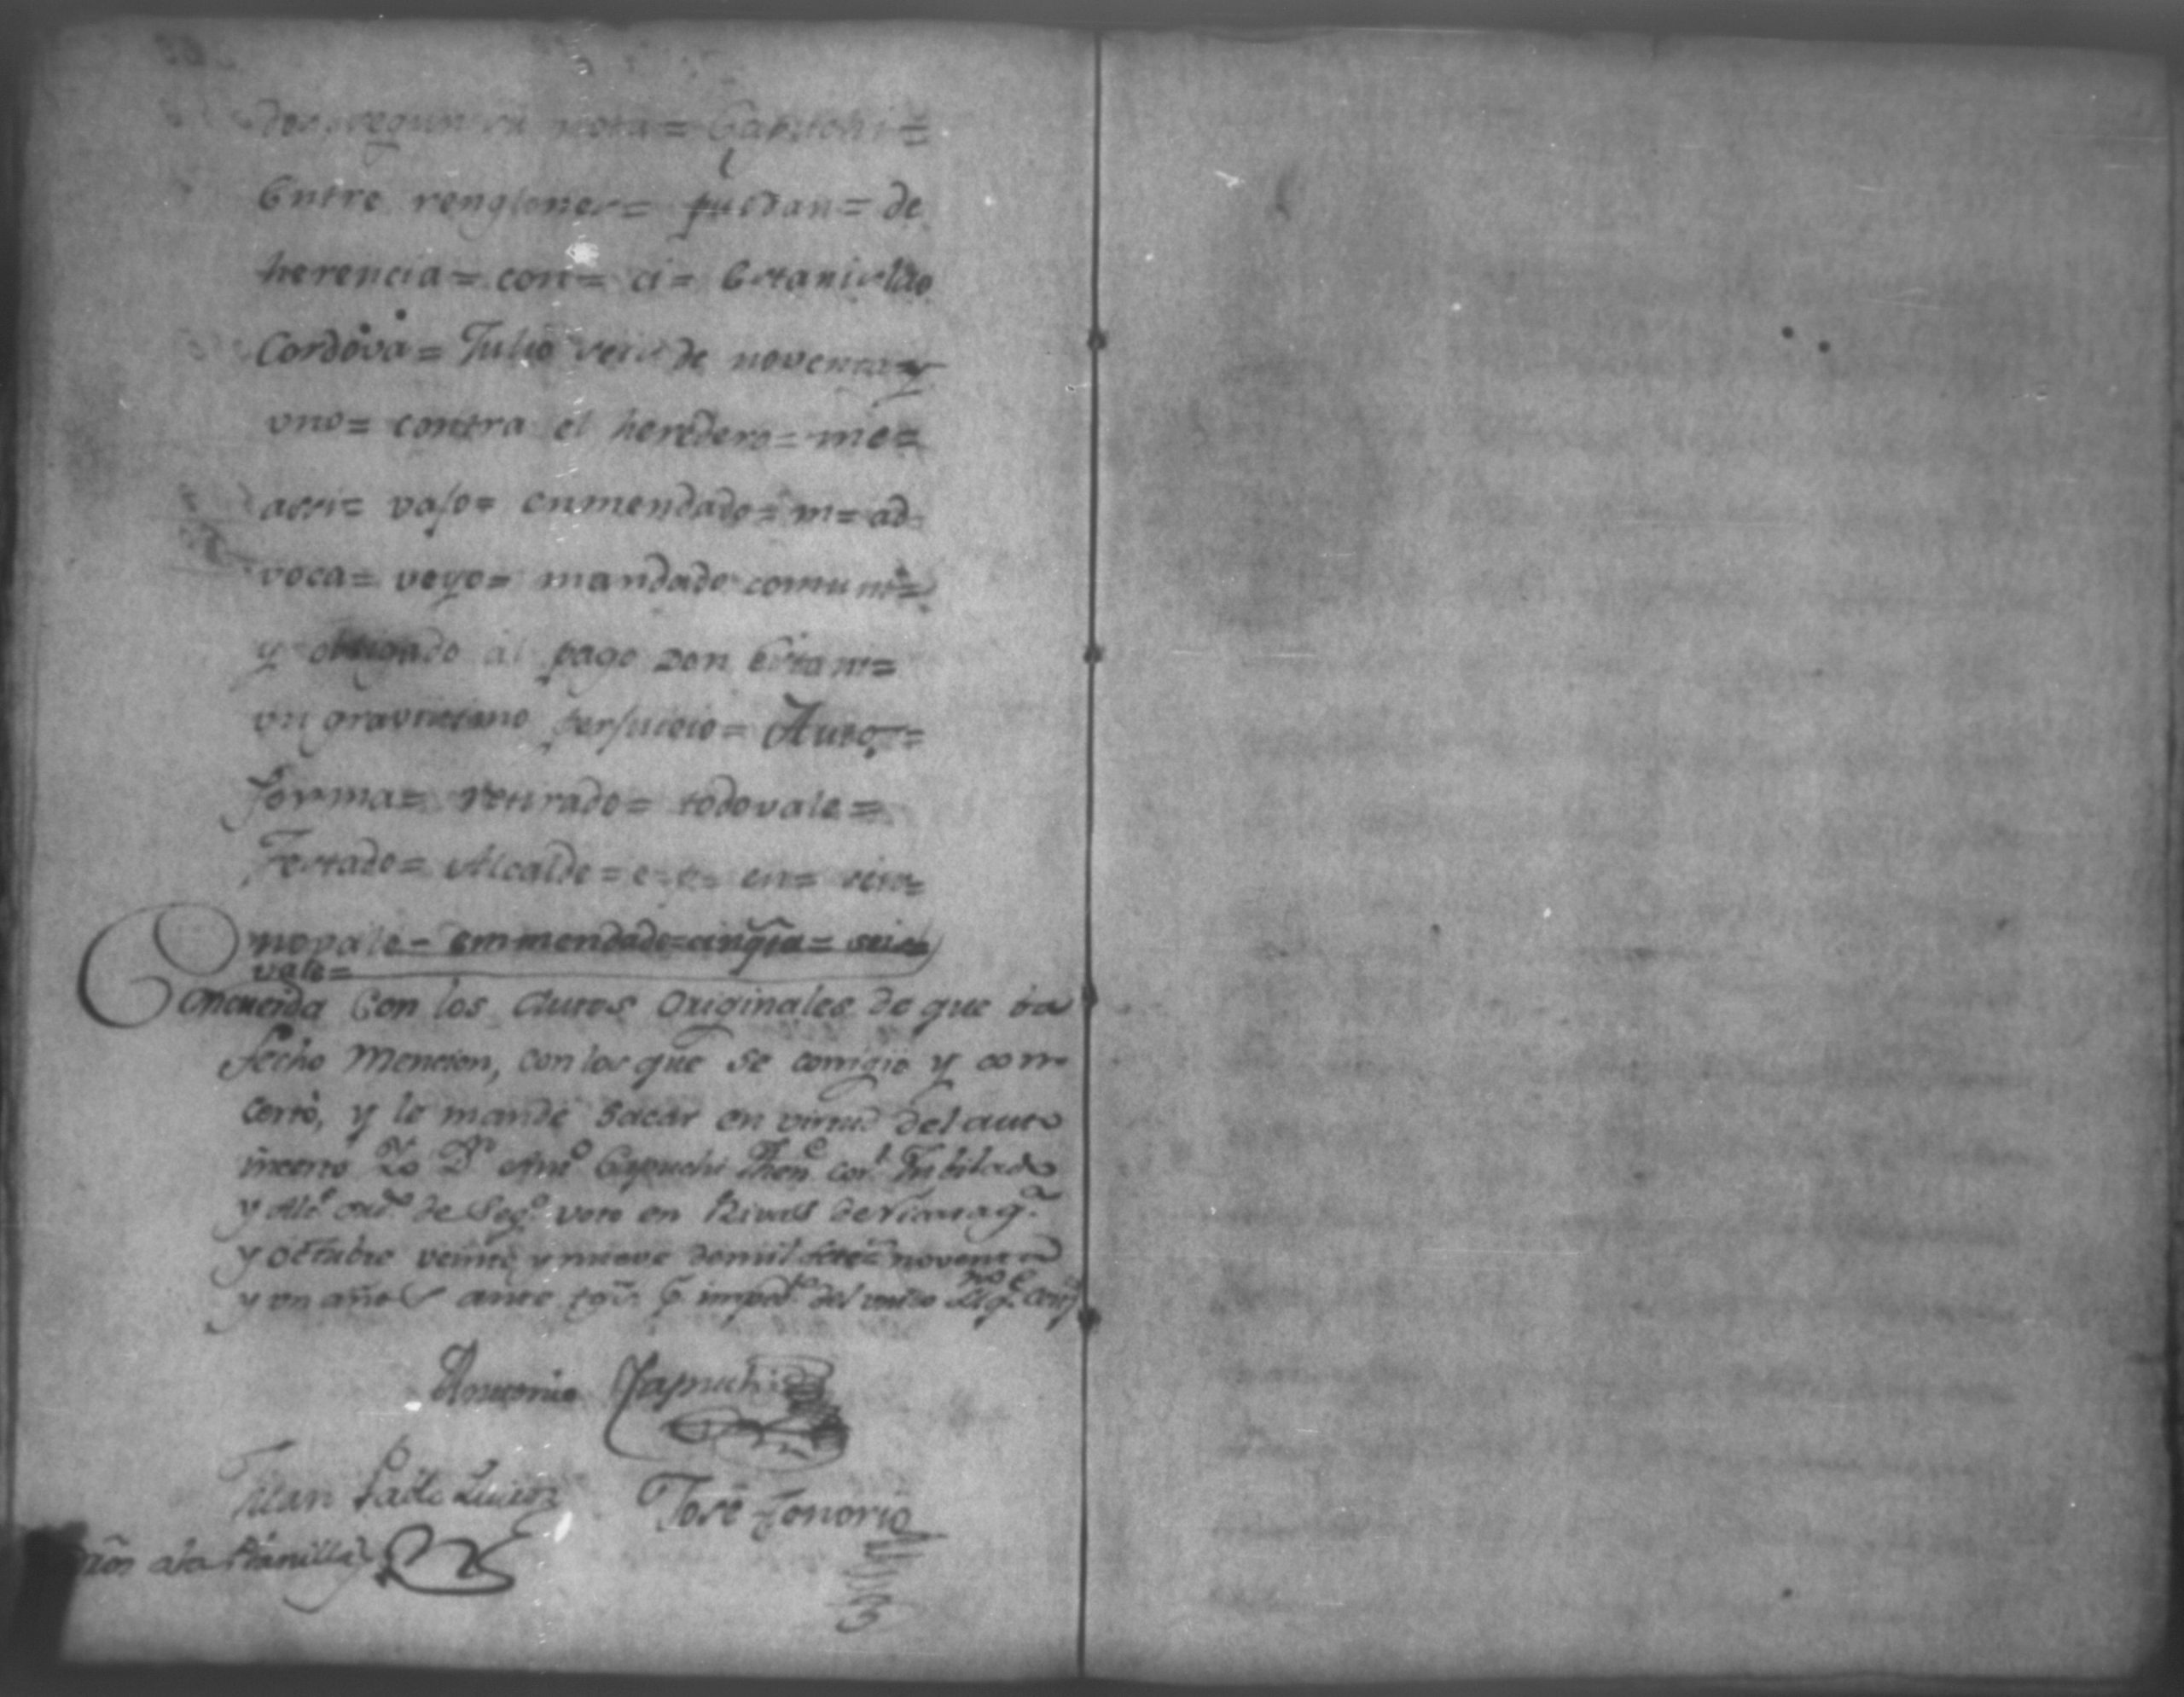 segun su nota=
Entre renglones= puedan= de
herencia= con= ci= Estanislao
Cordova= Julio seis de noventa y
uno= contra el heredero= me=
assi= vajo= enmendado= m= ad
voca= veyo= mandado comuni=
y obligado al pago Don Estani=
un gravissimo perjuicio= Auto=
forma= retirado= todo vale=
Testado= Alcalde= e= en= seis=
no vale= emmendado=cinqta= seis=
vale=
Concuerda Con los Autos Originales de que va
fecho Mencion, con los que se corrigio y con
certó, y lo mande sacar en virtud del auto
incerto Yo Dn Anto Capuchi Thene corl Jubilado
y Alce ordo de Sego voto en Rivas de Nicaraga
y octubre veinte y nueve de mil setecs noventa
y un años ante tgos pr impedto del unico
Antonio Capuchi
Juan
José Honorio